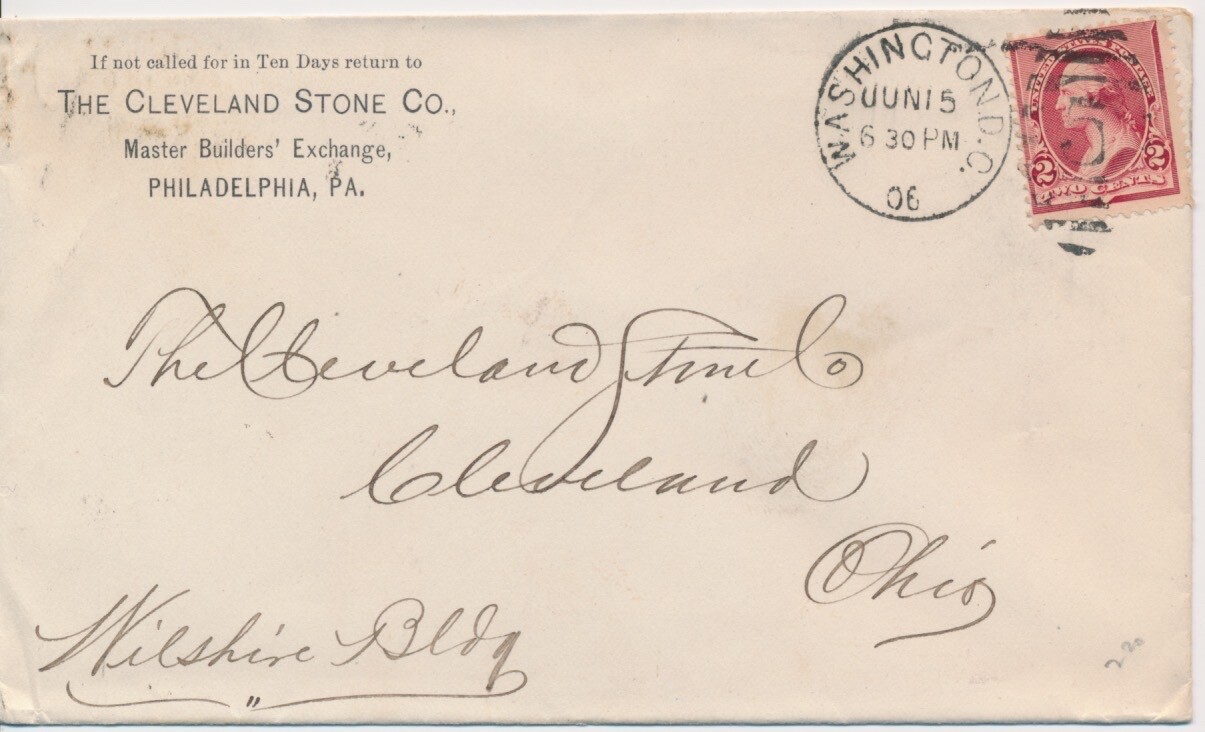 If not called for in Ten Days return to
THE CLEVELAND STONE CO.,
Master Builders' Exchange,
PHILADELPHIA, PA.
WASHINGTON, D.C.
JUN 15
6 30 PM
06
UNITED STATES POSTAGE
2 2
TWO CENTS
The Cleveland Stone Co
Cleveland
Ohio
Wilshire Bldg
"
220